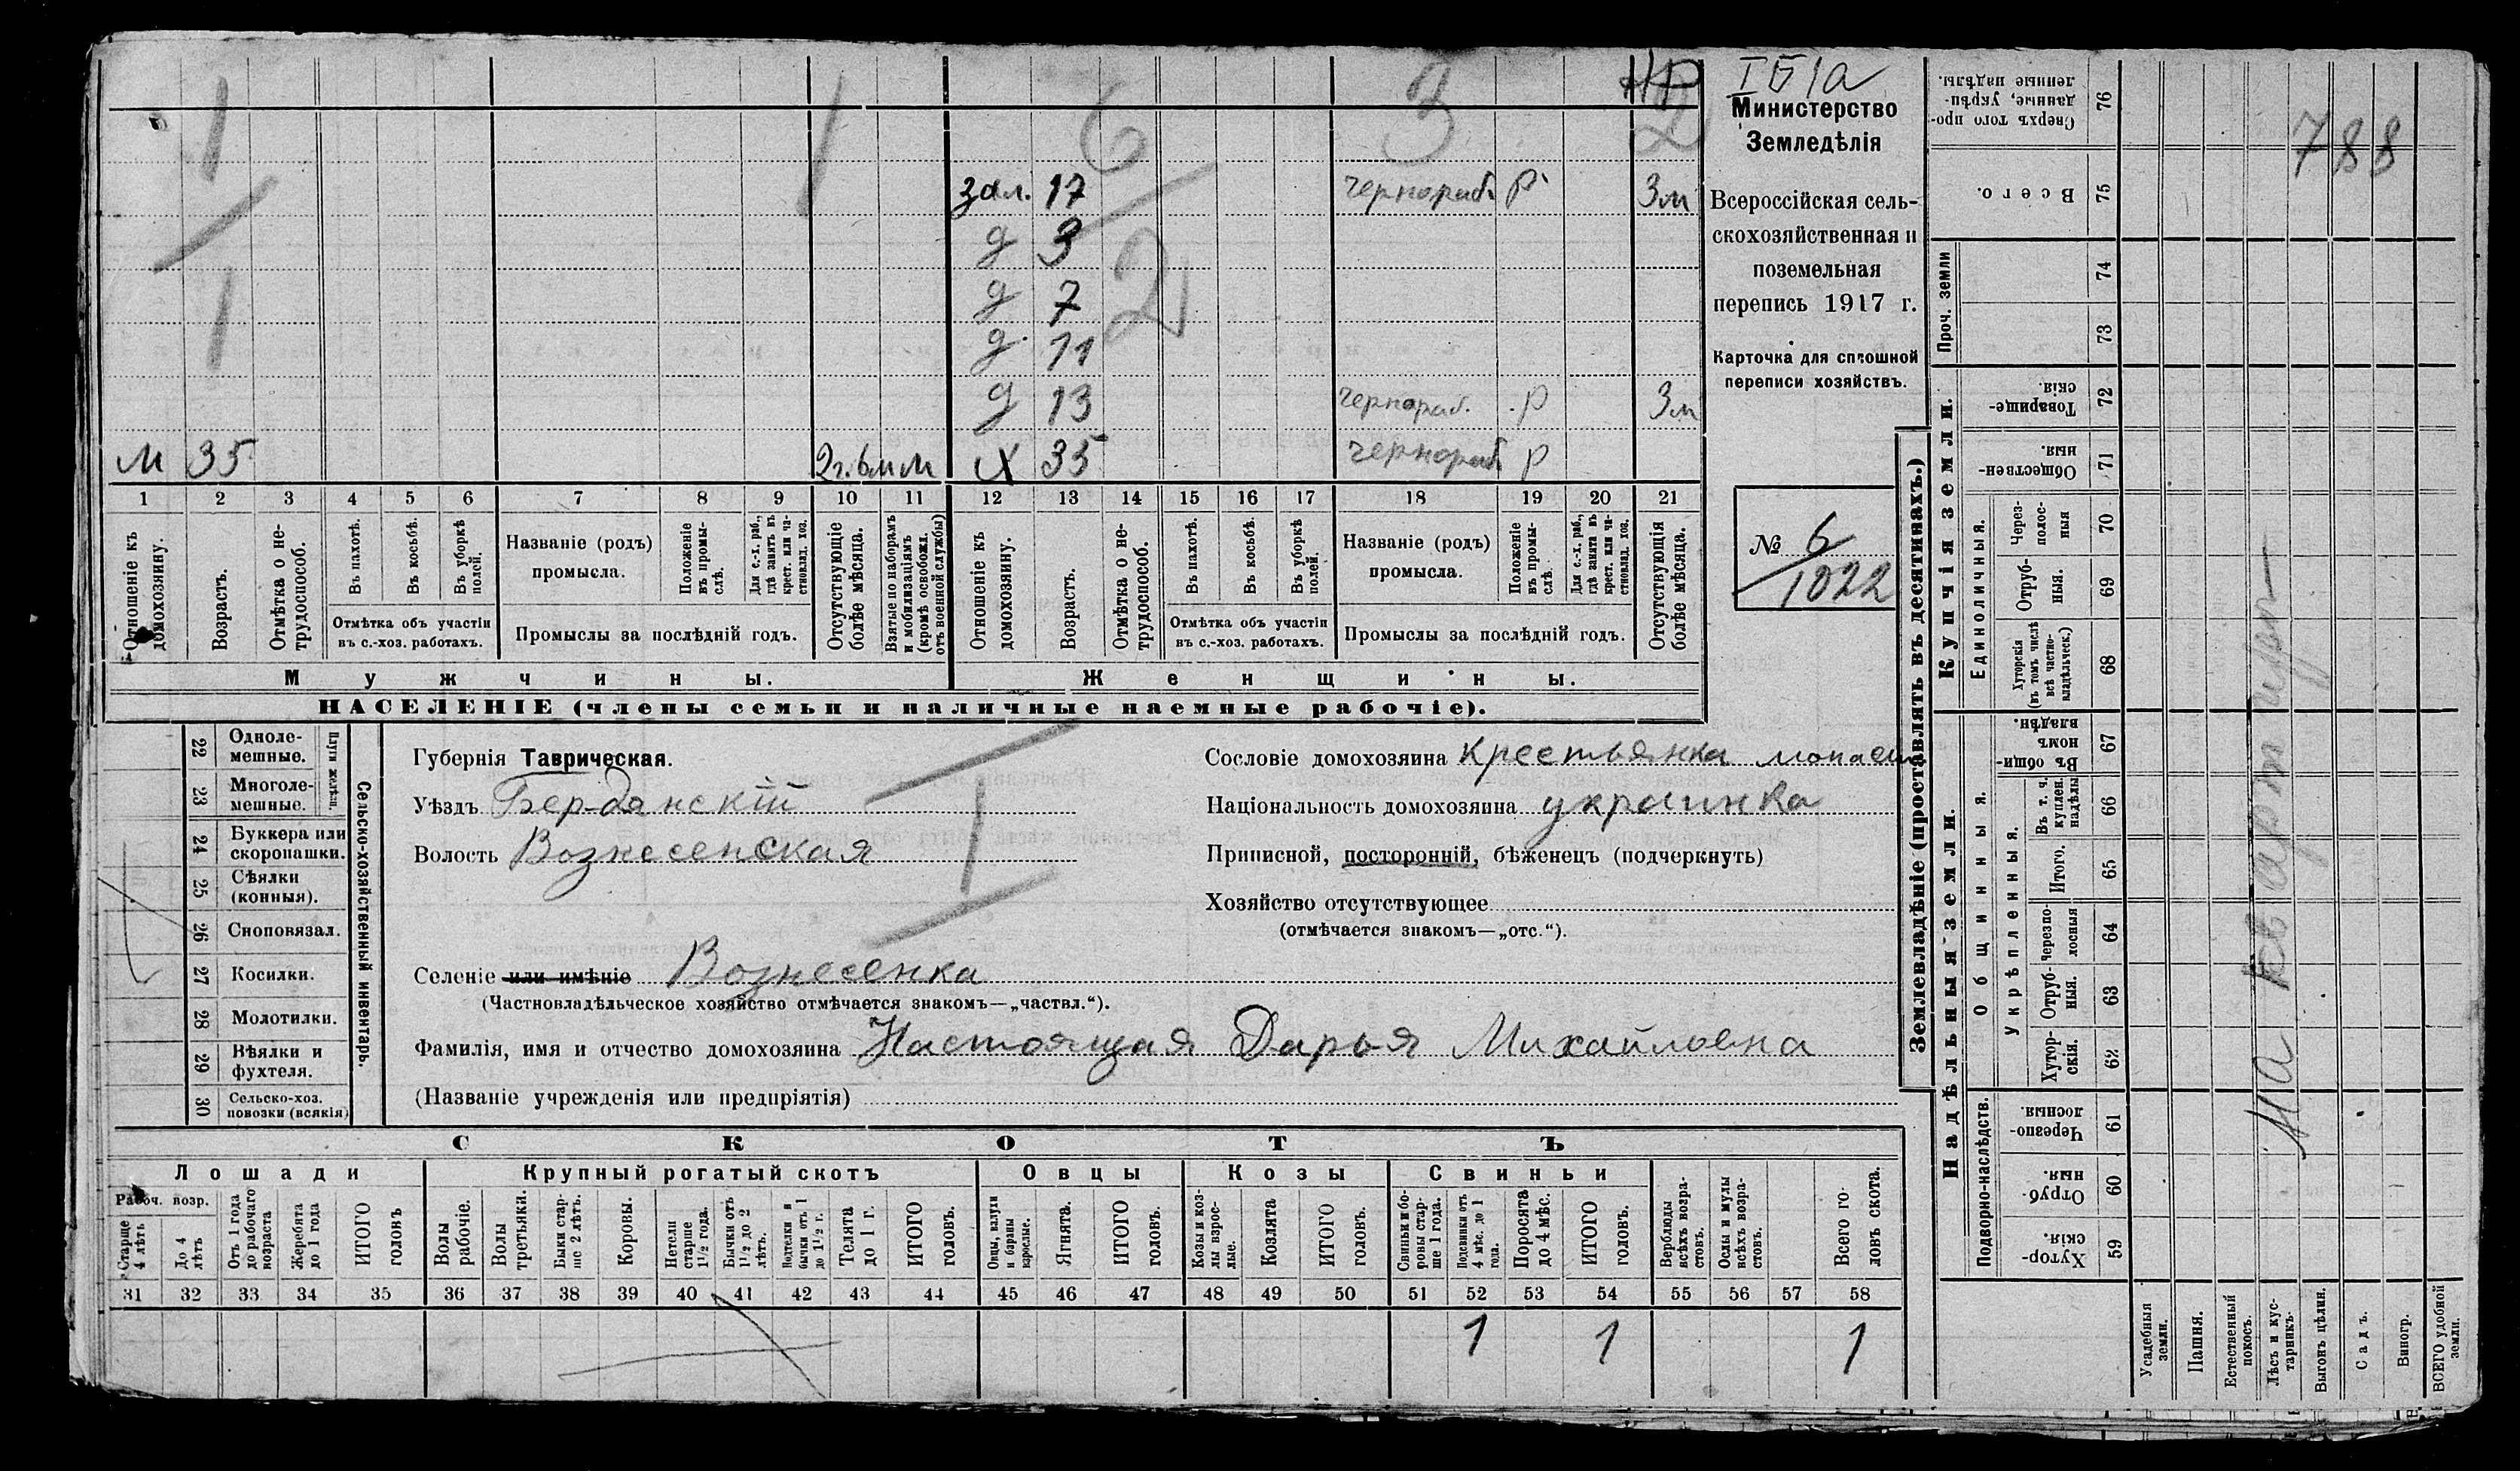 НР
IБ1а
1
1
6
3
2
Министерство
Земледѣлія
Всероссійская сель-
скохозяйственная и
поземельная
перепись 1917 г.
Карточка для сплошной
переписи хозяйствъ.
№ 6
1022
зол. 17 чернораб. р. 3м
д 3
д 7
2
1
д. 11
д 13 чернораб. р 3м
м 35 2г.6м м х 35 чернораб р
1 2 3 4 5 6 7 8 9 10 11 12 13 14 15 16 17 18 19 20 21
Отношеніе къ домохозяину.
Возрастъ.
Отмѣтка о не-трудоспособ.
Въ пахотѣ.
Въ косьбѣ.
Въ уборкѣ полей.
Отмѣтка объ участіи въ с.-хоз. работахъ.
Названіе (родъ) промысла.
Положеніе въ промы-слѣ.
Для с.-х. раб., гдѣ занятъ въ крест. или ча-стновлад. хоз.
Промыслы за послѣдній годъ.
Отсутствующіе болѣе мѣсяца.
Взятые по наборамъ и мобилизаціямъ (кромѣ освобожд. отъ военной службы)
Отношеніе къ домохозяину.
Возрастъ.
Отмѣтка о не-трудоспособ.
Въ пахотѣ.
Въ косьбѣ.
Въ уборкѣ полей.
Отмѣтка объ участіи въ с.-хоз. работахъ.
Названіе (родъ) промысла.
Положеніе въ промы-слѣ.
Для с.-х. раб., гдѣ занята въ крест. или ча-стновлад. хоз.
Промыслы за послѣдній годъ.
Отсутствующія болѣе мѣсяца.
Мужчины. Женщины.
НАСЕЛЕНІЕ (члены семьи и наличные наемные рабочіе).
22 Одноле-мешные.
23 Многоле-мешные.
Плуги желѣзн.
24 Буккера или скоропашки.
25 Сѣялки (конныя).
26 Сноповязал.
27 Косилки.
28 Молотилки.
29 Вѣялки и фухтеля.
30 Сельско-хоз. повозки (всякія)
Сельско-хозяйственный инвентарь.
Губернія Таврическая.
Уѣздъ Бердянскій
Волость Вознесенская
1
Селеніе или имѣніе Вознесенка
(Частновладѣльческое хозяйство отмѣчается знакомъ—„частвл.“).
Фамилія, имя и отчество домохозяина Настоящая Дарья Михайловна
(Названіе учрежденія или предпріятія)
Сословіе домохозяина Крестьянка
Національность домохозяина украинка
Приписной, посторонній, бѣженецъ (подчеркнуть)
Хозяйство отсутствующее
(отмѣчается знакомъ—„отс.“).
СКОТЪ
Лошади Крупный рогатый скотъ Овцы Козы Свиньи
Рабоч. возр.
Старше 4 лѣтъ
До 4 лѣтъ
Отъ 1 года до рабочаго возраста
Жеребята до 1 года
ИТОГО головъ
Волы рабочіе.
Волы третьяки.
Быки стар-ше 2 лѣтъ.
Коровы.
Нетели старше 1½ года.
Бычки отъ 1½ до 2 лѣтъ.
Подтелки и бычки отъ 1 до 1½ г.
Телята до 1 г.
ИТОГО головъ.
Овцы, валухи и бараны взрослые.
Ягнята.
ИТОГО головъ.
Козы и коз-лы взрос-лые.
Козлята
ИТОГО головъ.
Свиньи и бо-ровы стар-ше 1 года.
Подсвинки отъ 4 мѣс. до 1 года.
Поросята до 4 мѣс.
ИТОГО головъ.
Верблюды всѣхъ возра-стовъ.
Ослы и мулы всѣхъ возра-стовъ.
Всего го-ловъ скота.
31 32 33 34 35 36 37 38 39 40 41 42 43 44 45 46 47 48 49 50 51 52 53 54 55 56 57 58
1 1 1
Землевладѣніе (проставлять въ десятинахъ.)
Надѣльныя земли. Купчія земли.
Проч. земли
Подворно-наслѣдств.
Общинныя.
Укрѣпленныя.
Единоличныя.
Сверхъ того про-данные, укрѣп-ленные надѣлы. 76
Всего. 75
74
73
Товарище-скія. 72
Обществен-ныя. 71
Через-полос-ныя 70
Отруб-ныя. 69
Хуторскія (въ томъ числѣ всѣ частно-владѣльческ.) 68
Въ общи-номъ владѣн. 67
Въ т. ч. куплен. надѣлы 66
Итого. 65
Черезпо-лосныя 64
Отруб-ныя. 63
Хутор-скія. 62
Черезпо-лосныя. 61
Отруб-ныя. 60
Хутор-скія. 59
Усадебныя земли.
Пашня.
Естественный покосъ.
Лѣсъ и кус-тарникъ.
Выгонъ цѣлин.
Садъ.
Виногр.
ВСЕГО удобной земли.
788
на квартире